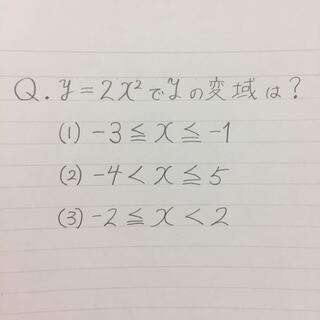 Q. y = 2x² で y の変域は?
(1) -3 ≦ x ≦ -1
(2) -4 < x ≦ 5
(3) -2 ≦ x < 2